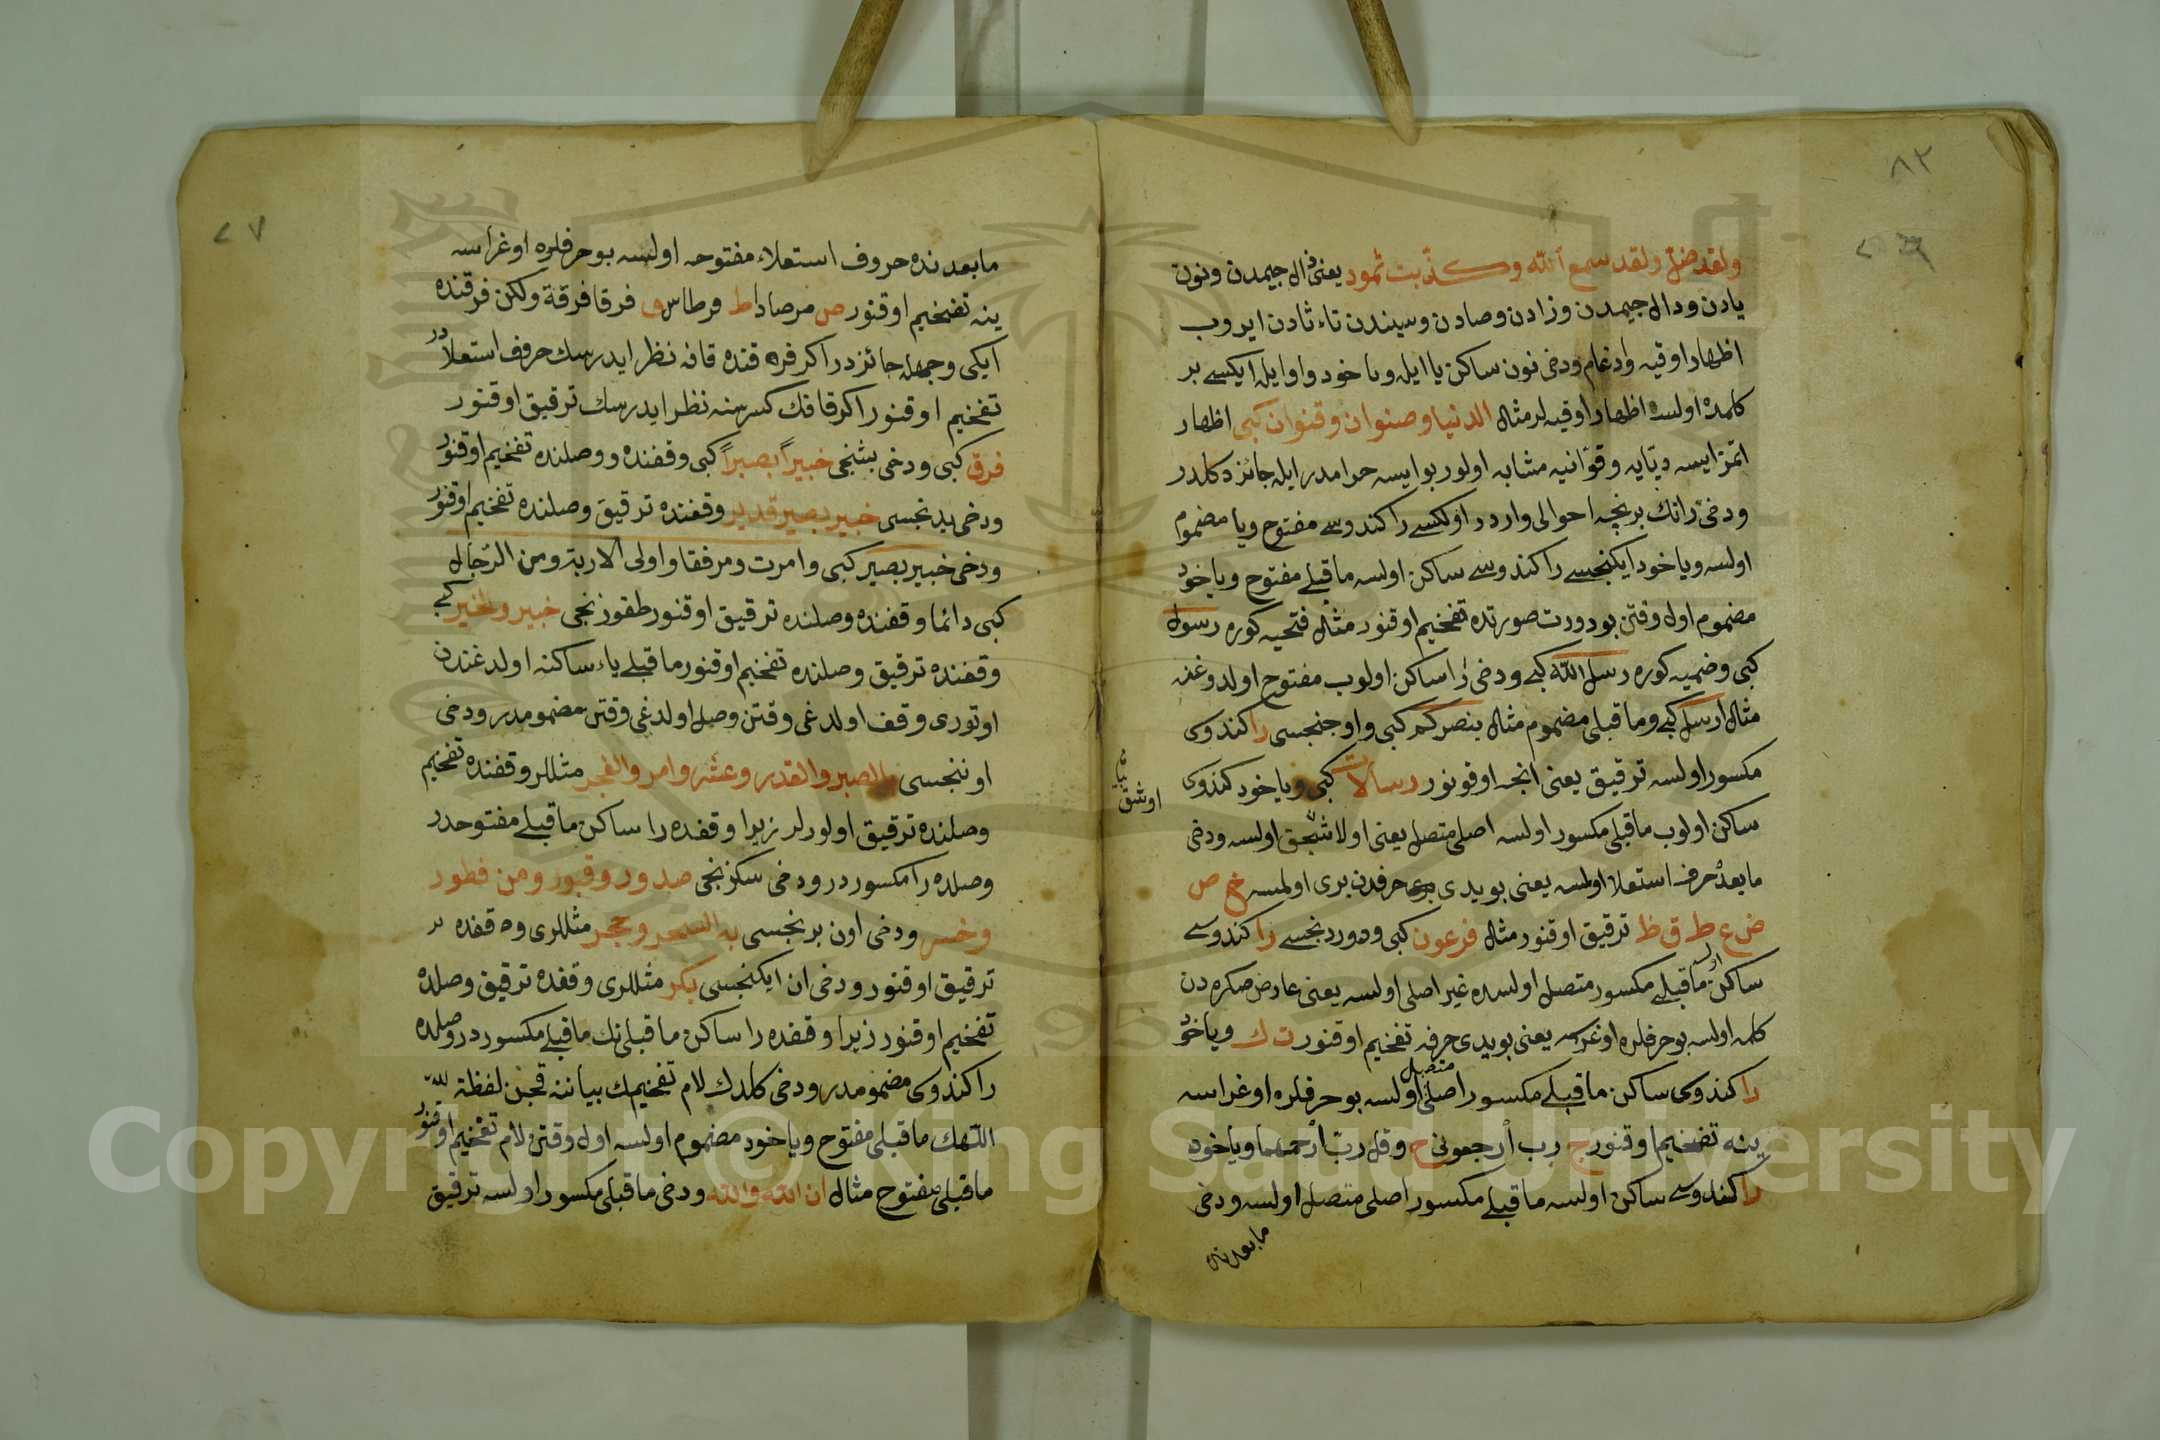 ٨٢
ولقد ضل ولقد سمع الله وكذبت ثمود يعنى ذال جيمدن ونون
يادن ودال جيمدن وزادن وصادن وسيندن تاء ثادن ايروب
اظهار اوقيه وادغام ودخى نون ساكن يا ايله ويا خود واو ايله ايكسى بر
كلمده اولسه اظهار اوقيه لر مثال الدنيا وصنوان وقنوان كبى اظهار
اتمز ايسه ديايه وقوانيه مشابه اولور بو ايسه حرامدر ايله جائز دكلدر
ودخى رانك برنجه احوالى واردر اولكسى را كندوسى مفتوح ويا مضموم
اولسه ويا خود ايكنجسى را كندوسى ساكن اولسه ما قبلى مفتوح ويا خود
مضموم اول وقتن بو دورت صورتده تفخيم اوقنور مثال فتحيه كوره رسول
كبى وضميه كوره رسل الله كبى ودخى را ساكن اولوب مفتوح اولدوغنه
مثال ارسل كبى وما قبلى مضموم مثال ينصركم كبى واوجنجسى را كندوى
مكسور اولسه ترقيق يعنى انجه اوقونور رسالات كبى ويا خود كندوى
ساكن اولوب ما قبلى مكسور اولسه اصلى متصل يعنى اولاشجق اولسه ودخى
ما بعد حرف استعلا اولمسه يعنى بو يدى حرفدن برى اولمسه خ ص
ض غ ط ق ظ ترقيق اوقنور مثال فرعون كبى ودوردنجسى را كندوسى
ساكن ما قبلى مكسور متصل اولسده غير اصلى اولسه يعنى عارض صكره دن
كلمه اولسه بو حرفلره اوغرسه يعنى بو يدى حرفه تفخيم اوقنور ت ك ويا خود
را كندوى ساكن ما قبلى مكسور اصلى متصل اولسه بو حرفلره اوغراسه
ينه تفخيم اوقنور ج رب ارجعون ح وقل رب ارحمهما ويا خود
را كندوسى ساكن اولسه ما قبلى مكسور اصلى متصل اولسه ودخى
ما بعدنده
٢٧
ما بعدنده حروف استعلاء مفتوحه اولسه بو حرفلره اوغراسه
ينه تفخيم اوقنور ص مرصادا ط قرطاس ق فرقا فرقة ولكن فرقنده
ايكى وجهله جائزدر اكر فرقنده قافه نظر ايدرسك حروف استعلادر
تفخيم اوقنور اكر قافك كسرسنه نظر ايدرسك ترقيق اوقنور
فرق كبى ودخى بشنجى خبيرا بصيرا كبى وقفنده ووصلنده تفخيم اوقنور
ودخى يدنجسى خبير بصير قدير وقفنده ترقيق وصلنده تفخيم اوقنور
ودخى خبير بصير كبى وامرت ومرفقا واولى الاربة ومن الرجال
كبى دائما وقفنده وصلنده ترقيق اوقنور طقوزنجى خبير ولخير كبى
وقفنده ترقيق وصلنده تفخيم اوقنور ما قبلى ياء ساكنه اولدغندن
اوتورى وقف اولدغى وقتن وصل اولدغى وقتن مضمومدر ودخى
اوننجسى بالصبر والقدر وعشر وامر والفجر مثللر وقفنده تفخيم
وصلنده ترقيق اولورلر زيرا وقفده را ساكن ما قبلى مفتوحدر
وصلده را مكسوردر ودخى سكزنجى صدور وقبور ومن فطور
وخسر ودخى اون برنجسى به السحر وحجر مثللرى وقفده
ترقيق اوقنور ودخى ان ايكنجسى بكر مثللرى وقفده ترقيق وصلده
تفخيم اوقنور زيرا وقفده را ساكن ما قبلى نك ما قبلى مكسوردر وصلده
را كندوى مضمومدر ودخى كلدك لام تفخيمك بياننه قچن لفظة لله
اللهك ما قبلى مفتوح ويا خود مضموم اولسه اول وقتن لام تفخيم اوقنور
ما قبلى مفتوح مثال ان الله والله ودخى ما قبلى مكسور اولسه ترقيق
Copyright © King Saud University